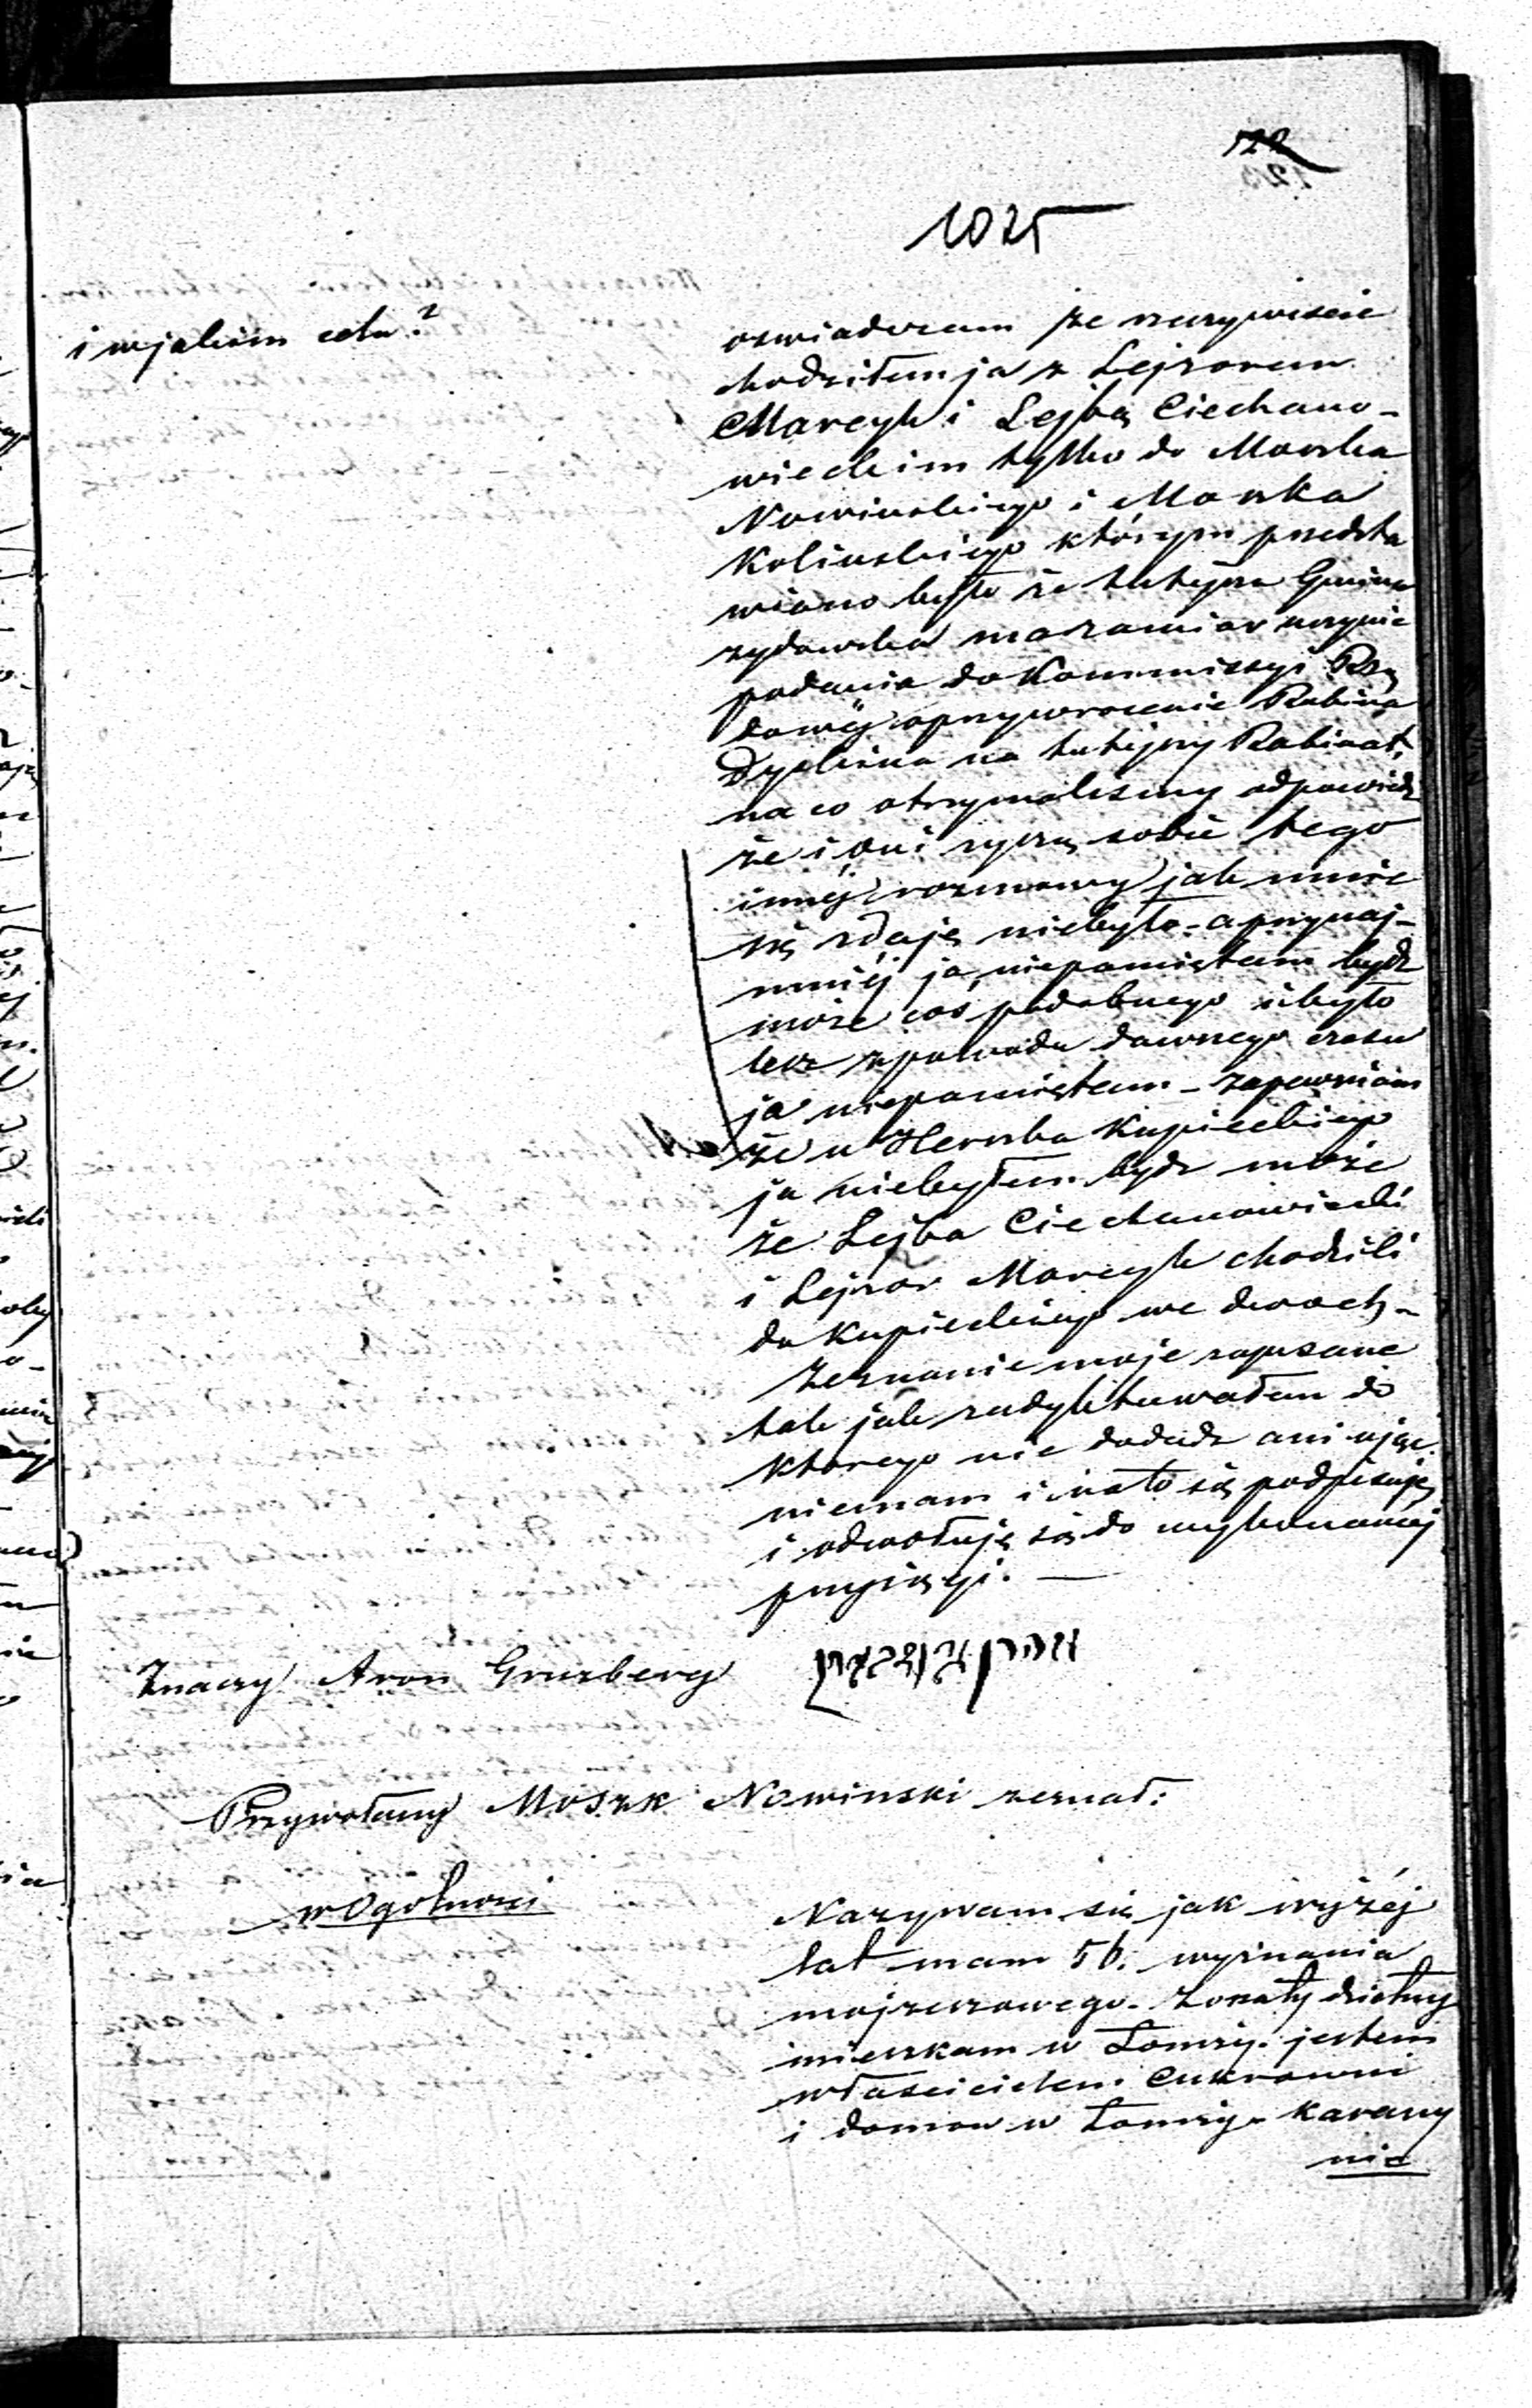 122
1025
i wjakim celu?
oswiadczam że rzeczywiscie
chodziłem ja z Lejzorem
Marcyk i Lejbą Ciechano-
wieckim tylko do Moszka
Nowinskiego i Moszka
Kolinskiego którym przedsta
wiano było że tutejsza Gmina
zydowska ma zamiar uczynic
podania do Kommissyi Rzą
dowéj o przywrocenie Rabina
Dyskina na tutejszy Rabinat,
na co otrzymalismy odpowiedz
że i oni życzą sobie tego
innéj rozmowy jak mnie
się zdaje niebyło – a przynaj-
mniéj ja niepamiętam bydz
może cos podobnego i było
lecz zpowodu dawnego czasu
ja niepamiętam – zapewniam
że u Herszka Kupieckiego
ja niebyłem bydz może
że Lejba Ciechanowiecki
i Lejzor Marcyk chodzili
do Kupieckiego we dwoch –
Zeznanie moje zapisane
tak jak zadyktowałem do
ktorego nie dodadz ani ująć
niemam i nato się podpisuję
i odwołuję się do wykonanéj
przysięgi. —
Znaczy Aron Gruzberg
Przywołany Moszk Nowinski zeznał:
w Ogolnosci
Nazywam się jak wyżéj
lat mam 56. wyznania
mojzeszowego – Zonaty dzietny
mieszkam w Łomży. jestem
włascicielem Cukrowni
i domow w Łomży – Karany
nie